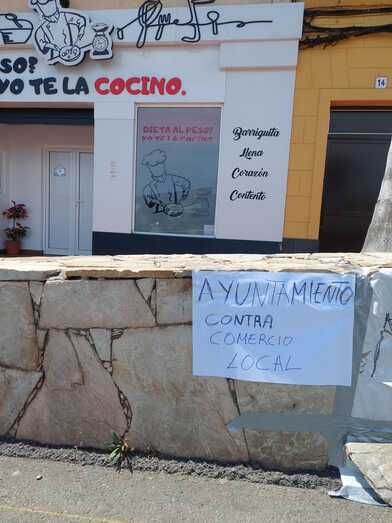 SO?
YO TE LA COCINO.
DIETA AL PESO?
YO TE LA COCINO
Barriguita
Llena
Corazón
Contento
14
AYUNTAMIENTO
CONTRA
COMERCIO
LOCAL